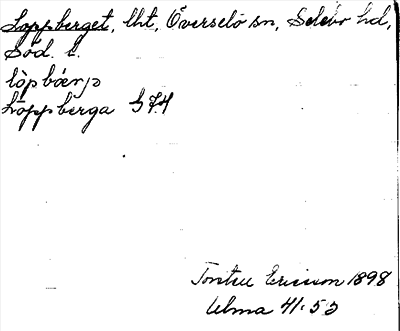 Loppberget, lht, Överselö sn, Selebo hd,
Söd. l.
lòpbǽrjə
Löppberga S 74
Torsten Ericsson 1898
Ulma 41:53